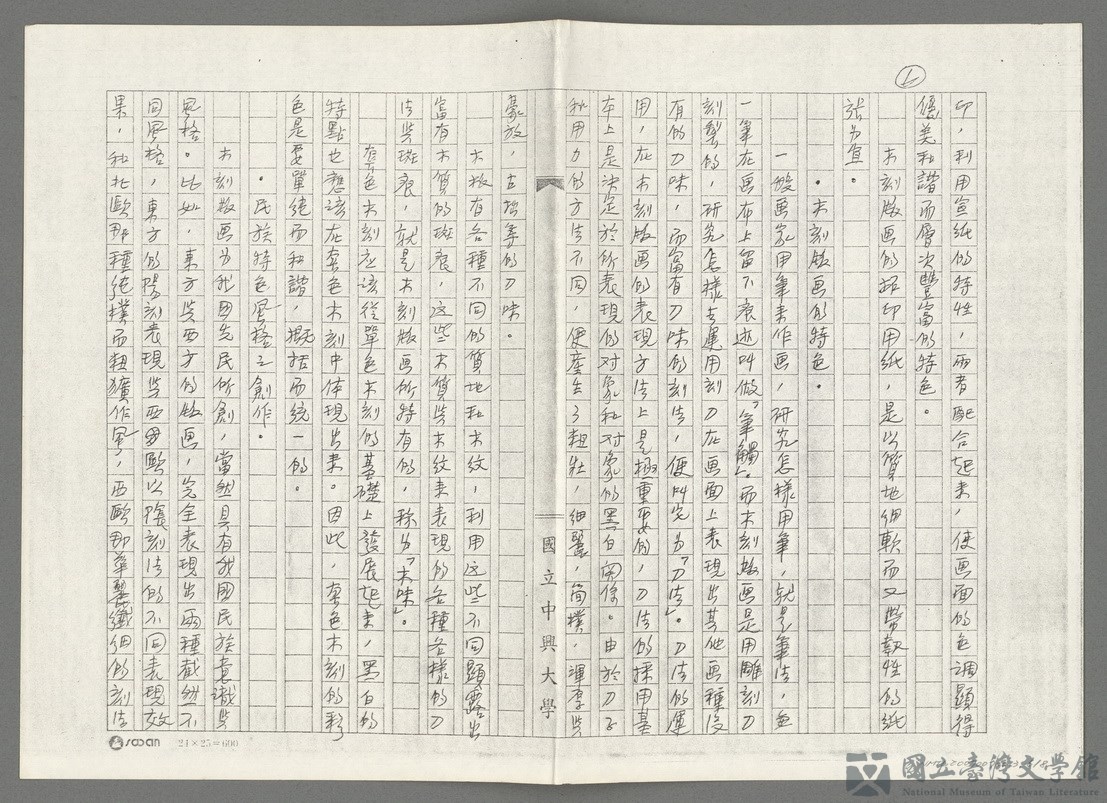 6
印，利用宣紙的特性，兩者配合起来，使画面的色调顯得
優美和諧而層次豐富的特色。
木刻版画的拓印用紙，是以質地細軟而又帶韌性的紙
張为宜。
•木刻版画的特色。
一般画家用筆来作画，研究怎樣用筆，就是筆法，色
一筆在画布上留下痕迹叫做「筆觸」。而木刻版画是用雕刻刀
刻製的，研究怎樣去運用刻刀在画面上表現出其他画種没
有的刀味，而富有刀味的刻法，便叫它为「刀法」。刀法的運
用，在木刻版画的表現方法上是極重要的，刀法的採用基
本上是決定於所表現的对象和对象的黑白関係。由於刀子
和用力的方法不同，便產生了粗壯，細緻，簡樸，渾厚与
豪放，古拙等的刀味。
木板有各種不同的質地和木紋，利用这些不同顯露出
富有木質的斑痕，这些木質与木紋来表現的各種各樣的刀
法与斑痕，就是木刻版画所特有的，称为「木味」。
套色木刻应该從單色木刻的基礎上發展起来，黑白的
特點也應该在套色木刻中体現出来。因此，套色木刻的彩
色是要單純而和諧，概括而統一的。
•民族特色風格之創作。
木刻版画为我國先民所創，當然具有我國民族意識与
風格。比如，東方与西方的版画，完全表現出兩種截然不
同風格，東方的陽刻表現与西國歐以陰刻法的不同表現效
果，和北歐那種純樸而粗獷作風，西歐那華麗纖細的刻法
國立中興大學
sooan 24×25=600
國立臺灣文學館
National Museum of Taiwan Literature